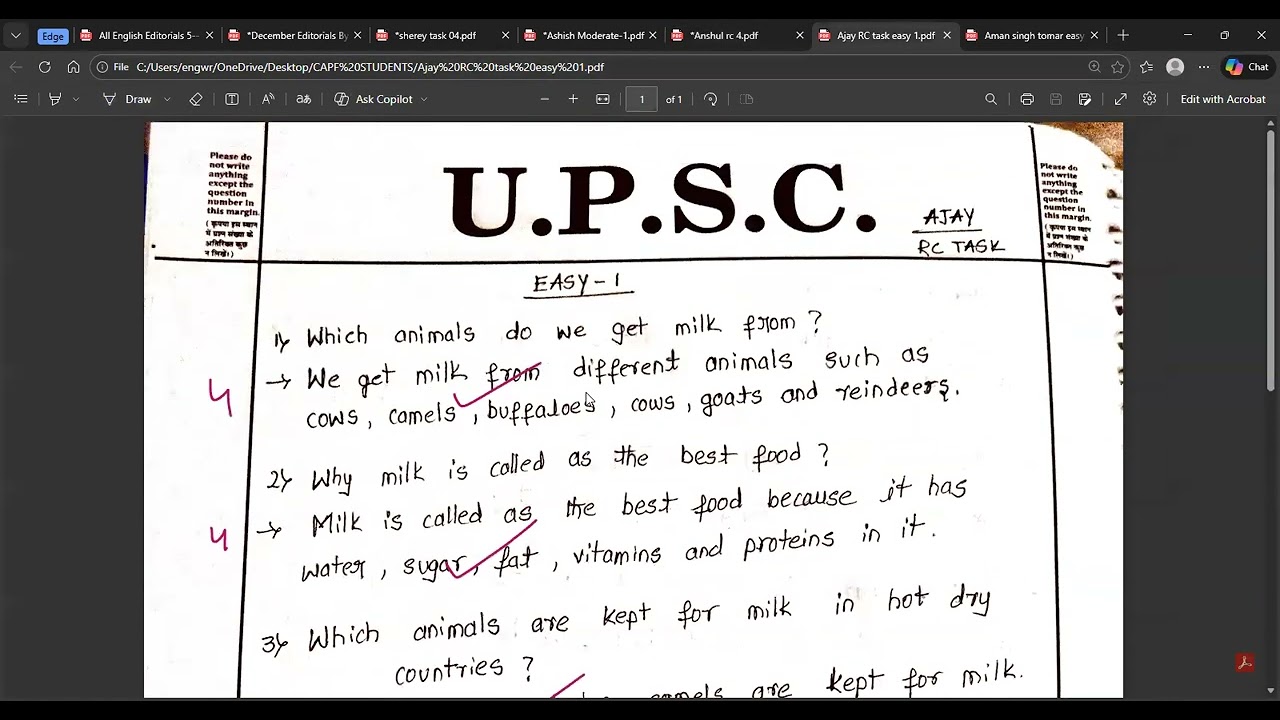 Edge
All English Editorials 5--
*December Editorials By
*sherey task 04.pdf
*Ashish Moderate-1.pdf
*Anshul rc 4.pdf
Ajay RC task easy 1.pdf
Aman singh tomar easy
File C:/Users/engwr/OneDrive/Desktop/CAPF%20STUDENTS/Ajay%20RC%20task%20easy%201.pdf
Chat
Draw
aあ
Ask Copilot
1 of 1
Edit with Acrobat
Please do
not write
anything
except the
question
number in
this margin.
( कृपया इस स्थान
में प्रश्न संख्या के
अतिरिक्त कुछ
न लिखें। )
U.P.S.C.
AJAY
RC TASK
Please do
not write
anything
except the
question
number in
this margin.
( कृपया इस स्थान
में प्रश्न संख्या के
अतिरिक्त कुछ
न लिखें। )
EASY - 1
1) Which animals do we get milk from ?
→ We get milk from different animals such as
4
cows, camels, buffaloes, cows, goats and reindeers.
2) Why milk is called as the best food ?
→ Milk is called as the best food because it has
4
water, sugar, fat, vitamins and proteins in it.
3) Which animals are kept for milk in hot dry
countries ?
camels are kept for milk.